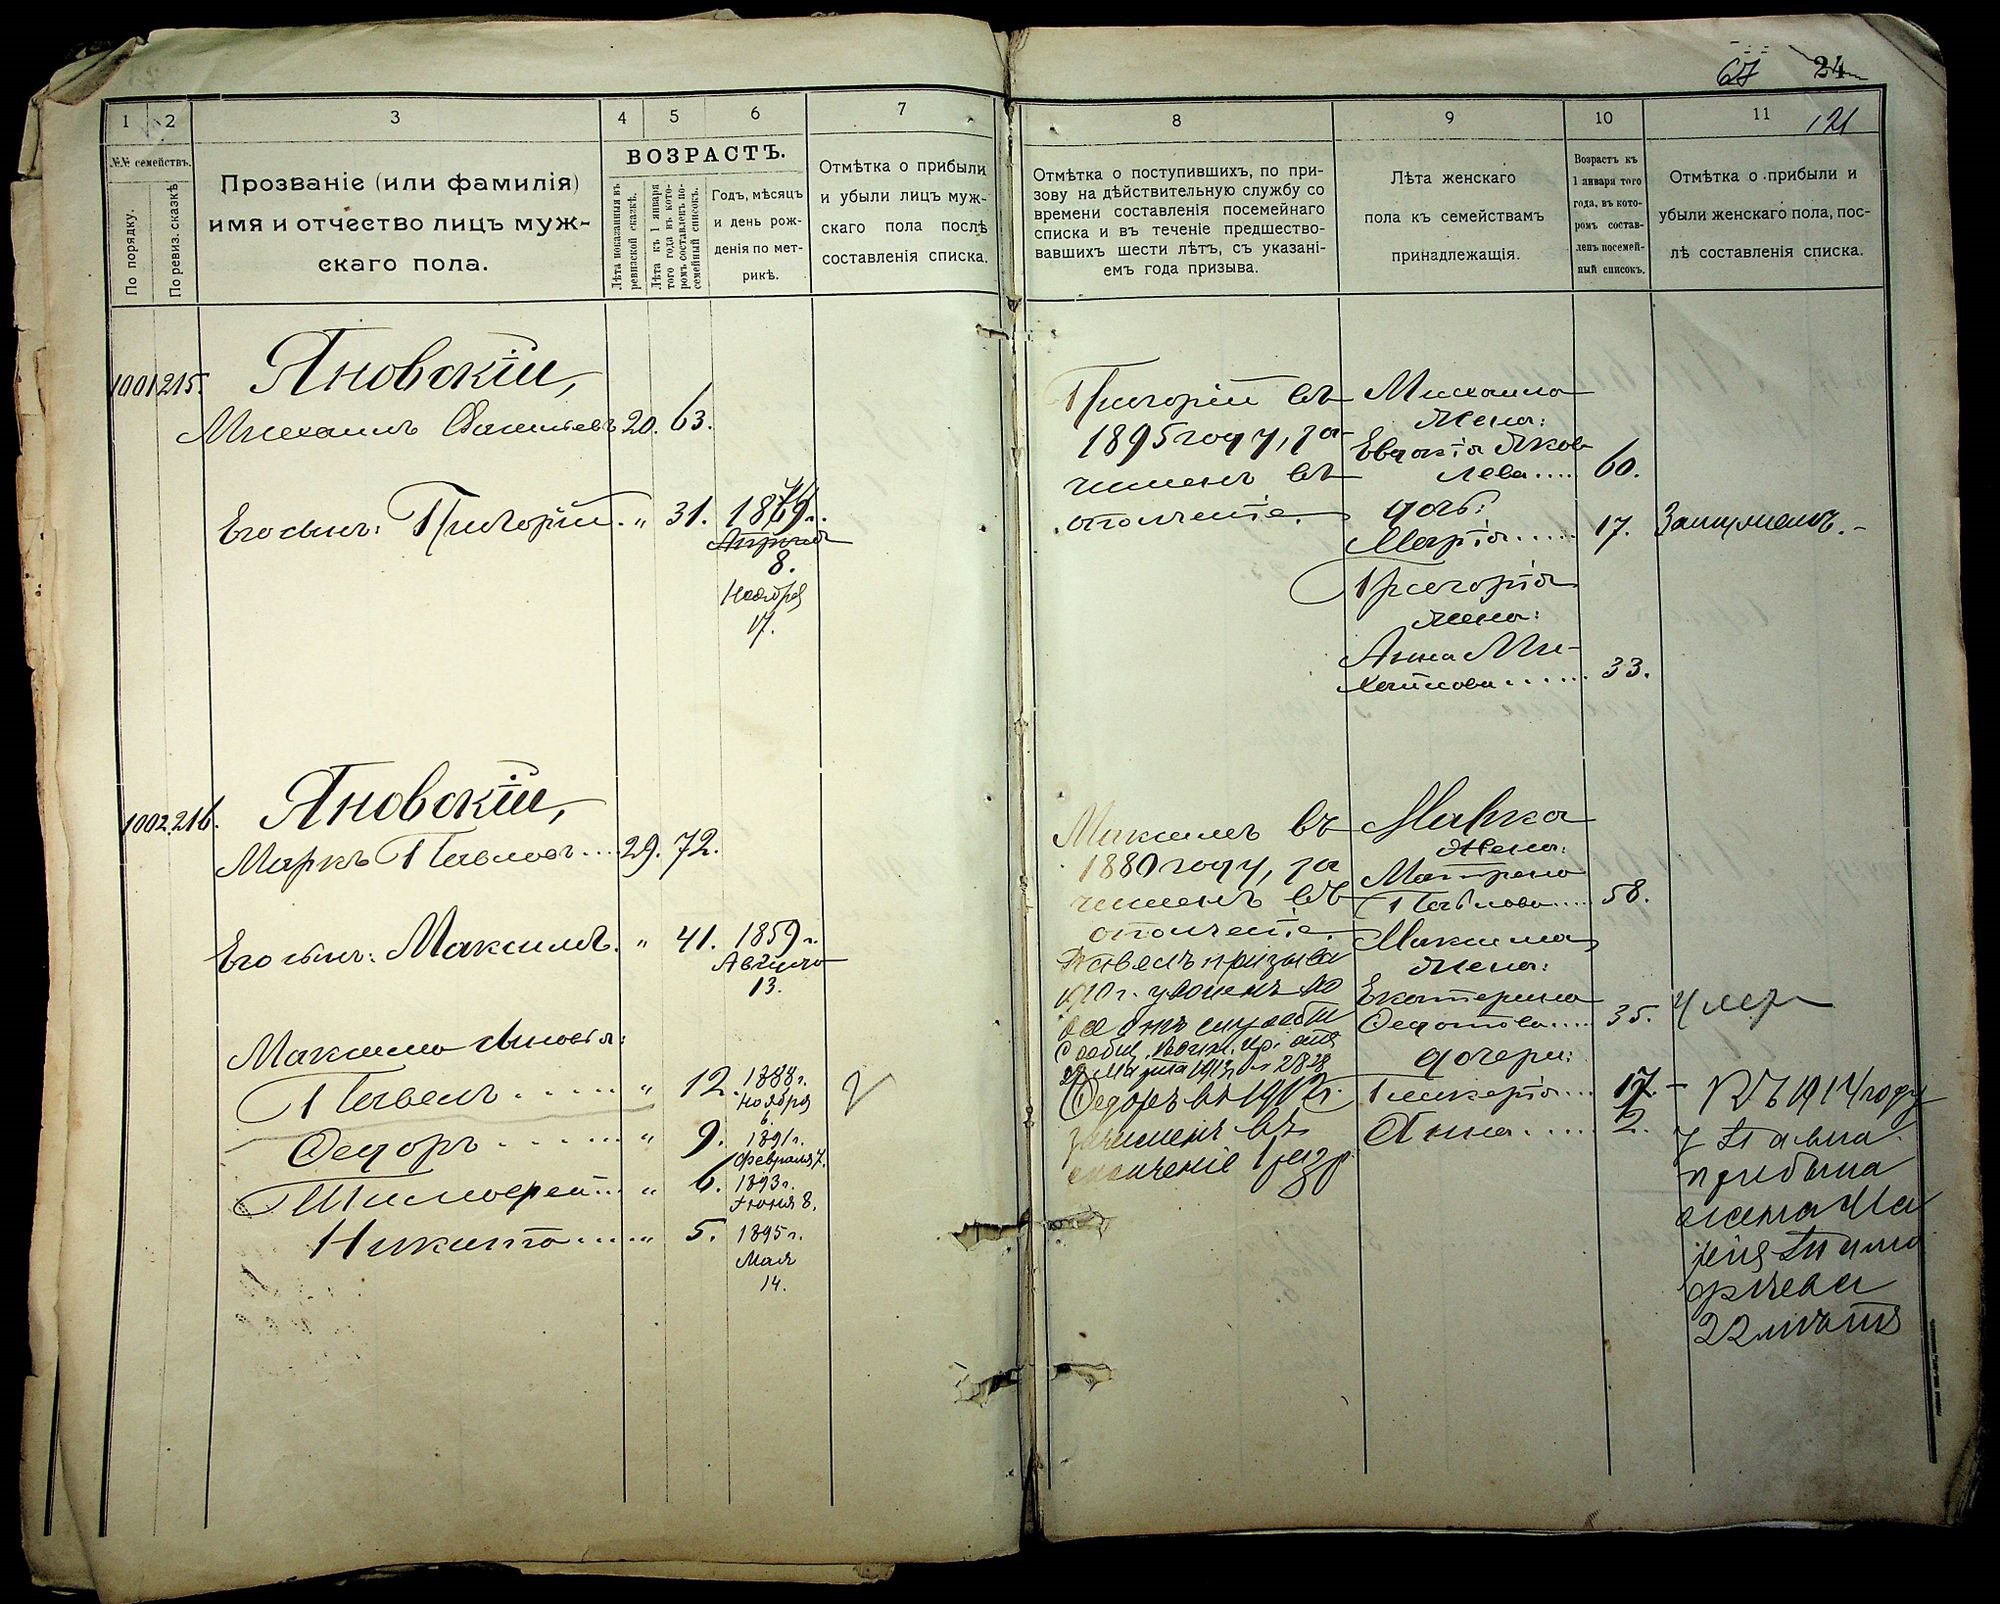 67 24
121
1 2 3 4 5 6 7
№№ семействъ.
По порядку.
По ревиз. сказкѣ
Прозваніе (или фамилія)
имя и отчество лицъ муж-
скаго пола.
ВОЗРАСТЪ.
Лѣта показанныя въ
ревизской сказкѣ.
Лѣта къ 1 января
того года въ кото-
ромъ составленъ по-
семейный списокъ.
Годъ, мѣсяцъ
и день рож-
денія по мет-
рикѣ.
Отмѣтка о прибыли
и убыли лицъ муж-
скаго пола послѣ
составленія списка.
1001 215. Яновскій,
Михаилъ 20. 63.
Его сынъ: Григорій. „ 31. 1869 г.
Апрѣля
8.
Ноября
17.
1002. 216. Яновскій,
Маркъ Павловъ .... 29. 72.
Его сынъ: Максимъ. „ 41. 1859 г.
Августа
13.
Максима сыновья:
Павелъ ..... „ 12. 1888 г.
Ноября
6.
Федоръ ...... „ 9. 1891 г.
Февраля 7.
Тимофей ... „ 6. 1893 г.
Іюня 8.
Никита .... „ 5. 1895 г.
Мая
14.
8 9 10 11
Отмѣтка о поступившихъ, по при-
зову на дѣйствительную службу со
времени составленія посемейнаго
списка и въ теченіе предшество-
вавшихъ шести лѣтъ, съ указані-
емъ года призыва.
Лѣта женскаго
пола къ семействамъ
принадлежащія.
Возрастъ къ
1 января того
года, въ кото-
ромъ состав-
ленъ посемей-
ный списокъ.
Отмѣтка о прибыли и
убыли женскаго пола, пос-
лѣ составленія списка.
Григорій въ
1895 году, за-
численъ въ
ополченіе.
Михаила
жена:
Евдокія Яков
лева .... 60.
дочь:
Марія ..... 17. Замужемъ. -
Григорія
жена:
Анна Ми-
хайлова ...... 33.
Максимъ въ
1880 году, за
численъ въ
ополченіе.
Павелъ призыва
1910 г. уволенъ
22 Марта 1913 г. 2828
Федоръ въ 1912 г.
зачисленъ въ
ополченіе 1 разр.
Марка
жена:
Матрена
Павлова .... 58.
Максима
жена:
Екатерина
Федотова .... 35. Умер
дочери:
Гликерія ... 17. - Въ 1914 году
Анна ..... 2. у Павла
прибыла
жена Ма
рія Тимо
фѣева
22 лѣтъ